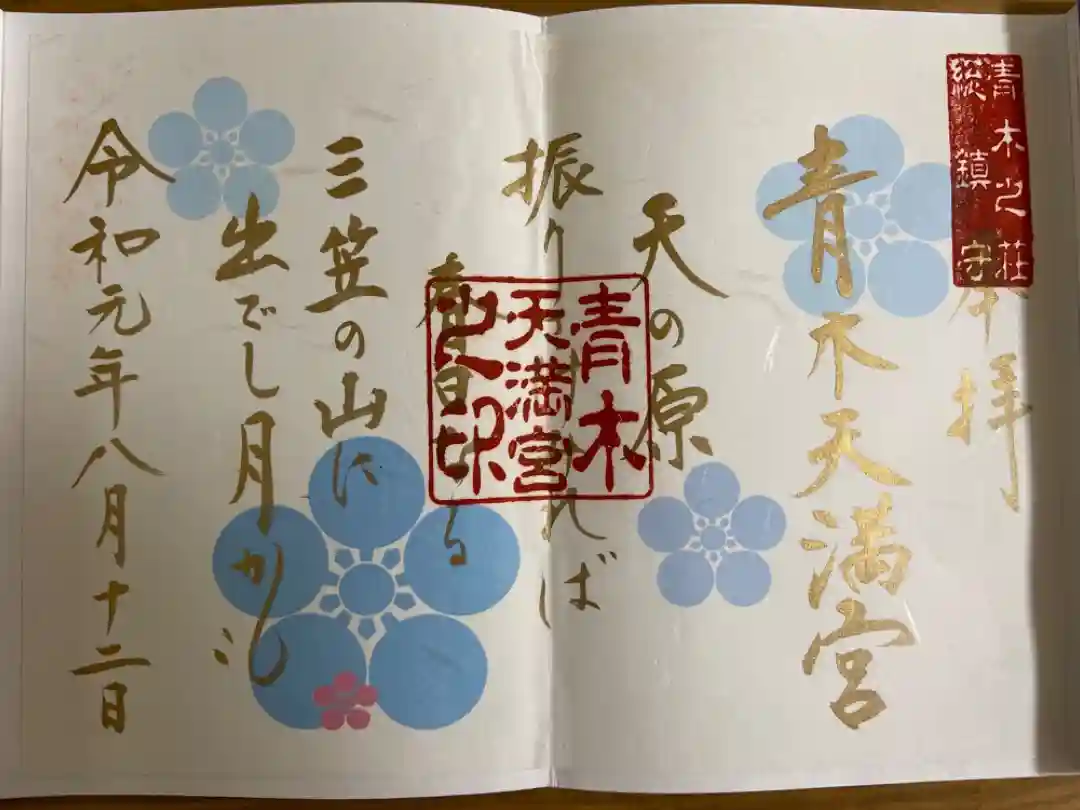 青木之荘
総鎮守
奉拝
青木天満宮
天の原
振りさけみれば
春日なる
三笠の山に
出でし月かも
令和元年八月十二日
青木
天満宮
之印